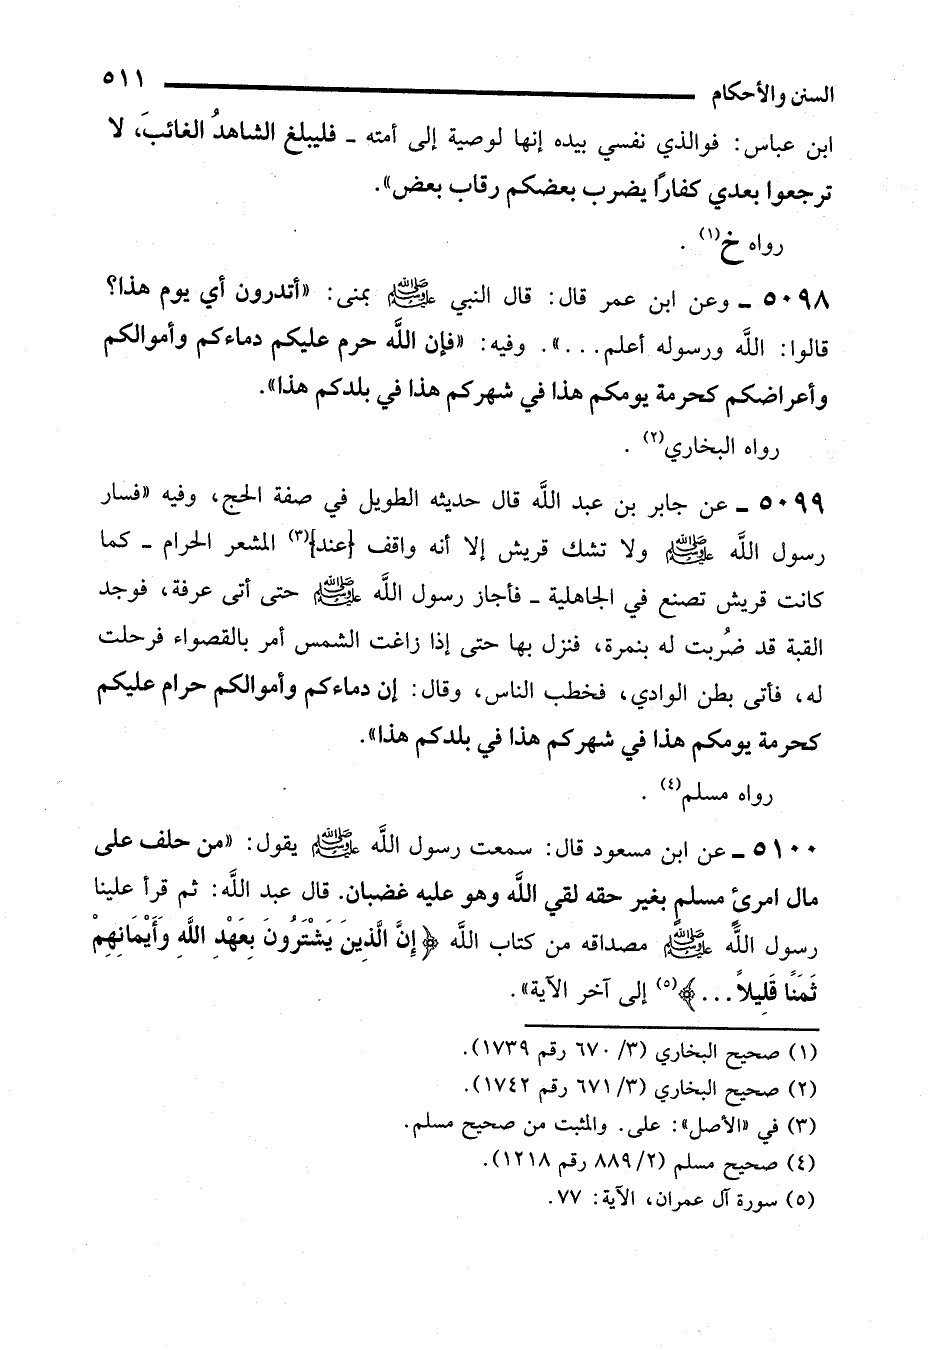 السنن والأحكام ٥١١
ابن عباس: فوالذي نفسي بيده إنها لوصية إلى أمته ـ فليبلغ الشاهدُ الغائبَ، لا
ترجعوا بعدي كفارًا يضرب بعضكم رقاب بعض».
رواه خ(١) .
٥٠٩٨ ـ وعن ابن عمر قال: قال النبي ﷺ بمنى: «أتدرون أي يوم هذا؟
قالوا: اللَّه ورسوله أعلم...». وفيه: «فإن اللَّه حرم عليكم دماءكم وأموالكم
وأعراضكم كحرمة يومكم هذا في شهركم هذا في بلدكم هذا».
رواه البخاري(٢) .
٥٠٩٩ ـ عن جابر بن عبد اللَّه قال حديثه الطويل في صفة الحج، وفيه «فسار
رسول اللَّه ﷺ ولا تشك قريش إلا أنه واقف {عند}(٣) المشعر الحرام ـ كما
كانت قريش تصنع في الجاهلية ـ فأجاز رسول اللَّه ﷺ حتى أتى عرفة، فوجد
القبة قد ضُربت له بنمرة، فنزل بها حتى إذا زاغت الشمس أمر بالقصواء فرحلت
له، فأتى بطن الوادي، فخطب الناس، وقال: إن دماءكم وأموالكم حرام عليكم
كحرمة يومكم هذا في شهركم هذا في بلدكم هذا».
رواه مسلم(٤) .
٥١٠٠ ـ عن ابن مسعود قال: سمعت رسول اللَّه ﷺ يقول: «من حلف على
مال امرئ مسلمٍ بغير حقه لقي اللَّه وهو عليه غضبان. قال عبد اللَّه: ثم قرأ علينا
رسول اللَّه ﷺ مصداقه من كتاب اللَّه ﴿إِنَّ الَّذِينَ يَشْتَرُونَ بِعَهْدِ اللَّهِ وَأَيْمَانِهِمْ
ثَمَنًا قَلِيلاً...﴾(٥) إلى آخر الآية».
(١) صحيح البخاري (٣/ ٦٧٠ رقم ١٧٣٩).
(٢) صحيح البخاري (٣/ ٦٧١ رقم ١٧٤٢).
(٣) في «الأصل»: على. والمثبت من صحيح مسلم.
(٤) صحيح مسلم (٢/ ٨٨٩ رقم ١٢١٨).
(٥) سورة آل عمران، الآية: ٧٧.